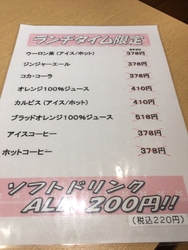 ランチタイム限定
ウーロン茶 (アイス/ホット) 378円
ジンジャーエール 378円
コカ・コーラ 378円
オレンジ100%ジュース 410円
カルピス (アイス/ホット) 410円
ブラッドオレンジ100%ジュース 518円
アイスコーヒー 378円
ホットコーヒー 378円
ソフトドリンク
ALL 200円!!
(税込220円)